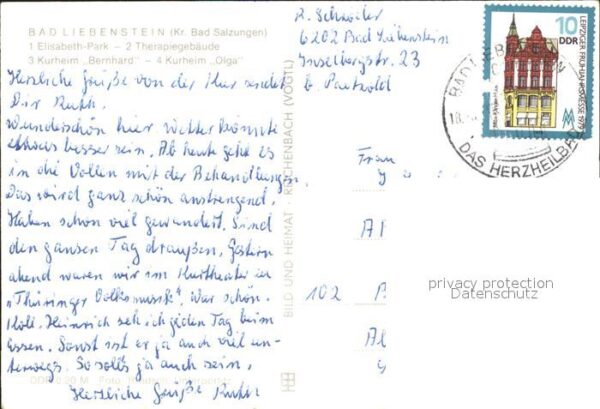 BAD LIEBENSTEIN (Kr. Bad Salzungen)
1 Elisabeth-Park – 2 Therapiegebäude
3 Kurheim „Bernhard" – 4 Kurheim „Olga"
Herzliche Grüße von der Kur sendet
Dir Ruth.
Wunderschön hier, Wetter könnte
etwas besser sein. Ab heute geht es
in die Vollen mit der Behandlungen.
Das wird ganz schön anstrengend.
Haben schon viel gewandert. Sind
den ganzen Tag draußen, gestern
abend waren wir im Kurtheater zu
„Thüringer Volksmusik". War schön.
Koll. Heinrich seh ich jeden Tag beim
Essen. Sonst ist er ja auch viel un-
terwegs. So solls ja auch sein,
Herzliche Grüße Ruth
DDR 0,20 M Foto
BILD UND HEIMAT REICHENBACH (VOGTL)
R. Schröder
6202 Bad Liebenstein
Inselbergstr. 23
b. Paetzold
10
DDR
LEIPZIGER FRÜHJAHRSMESSE 1979
BAD LIEBENSTEIN
18.
DAS HERZHEILBAD
Frau
102
privacy protection
Datenschutz